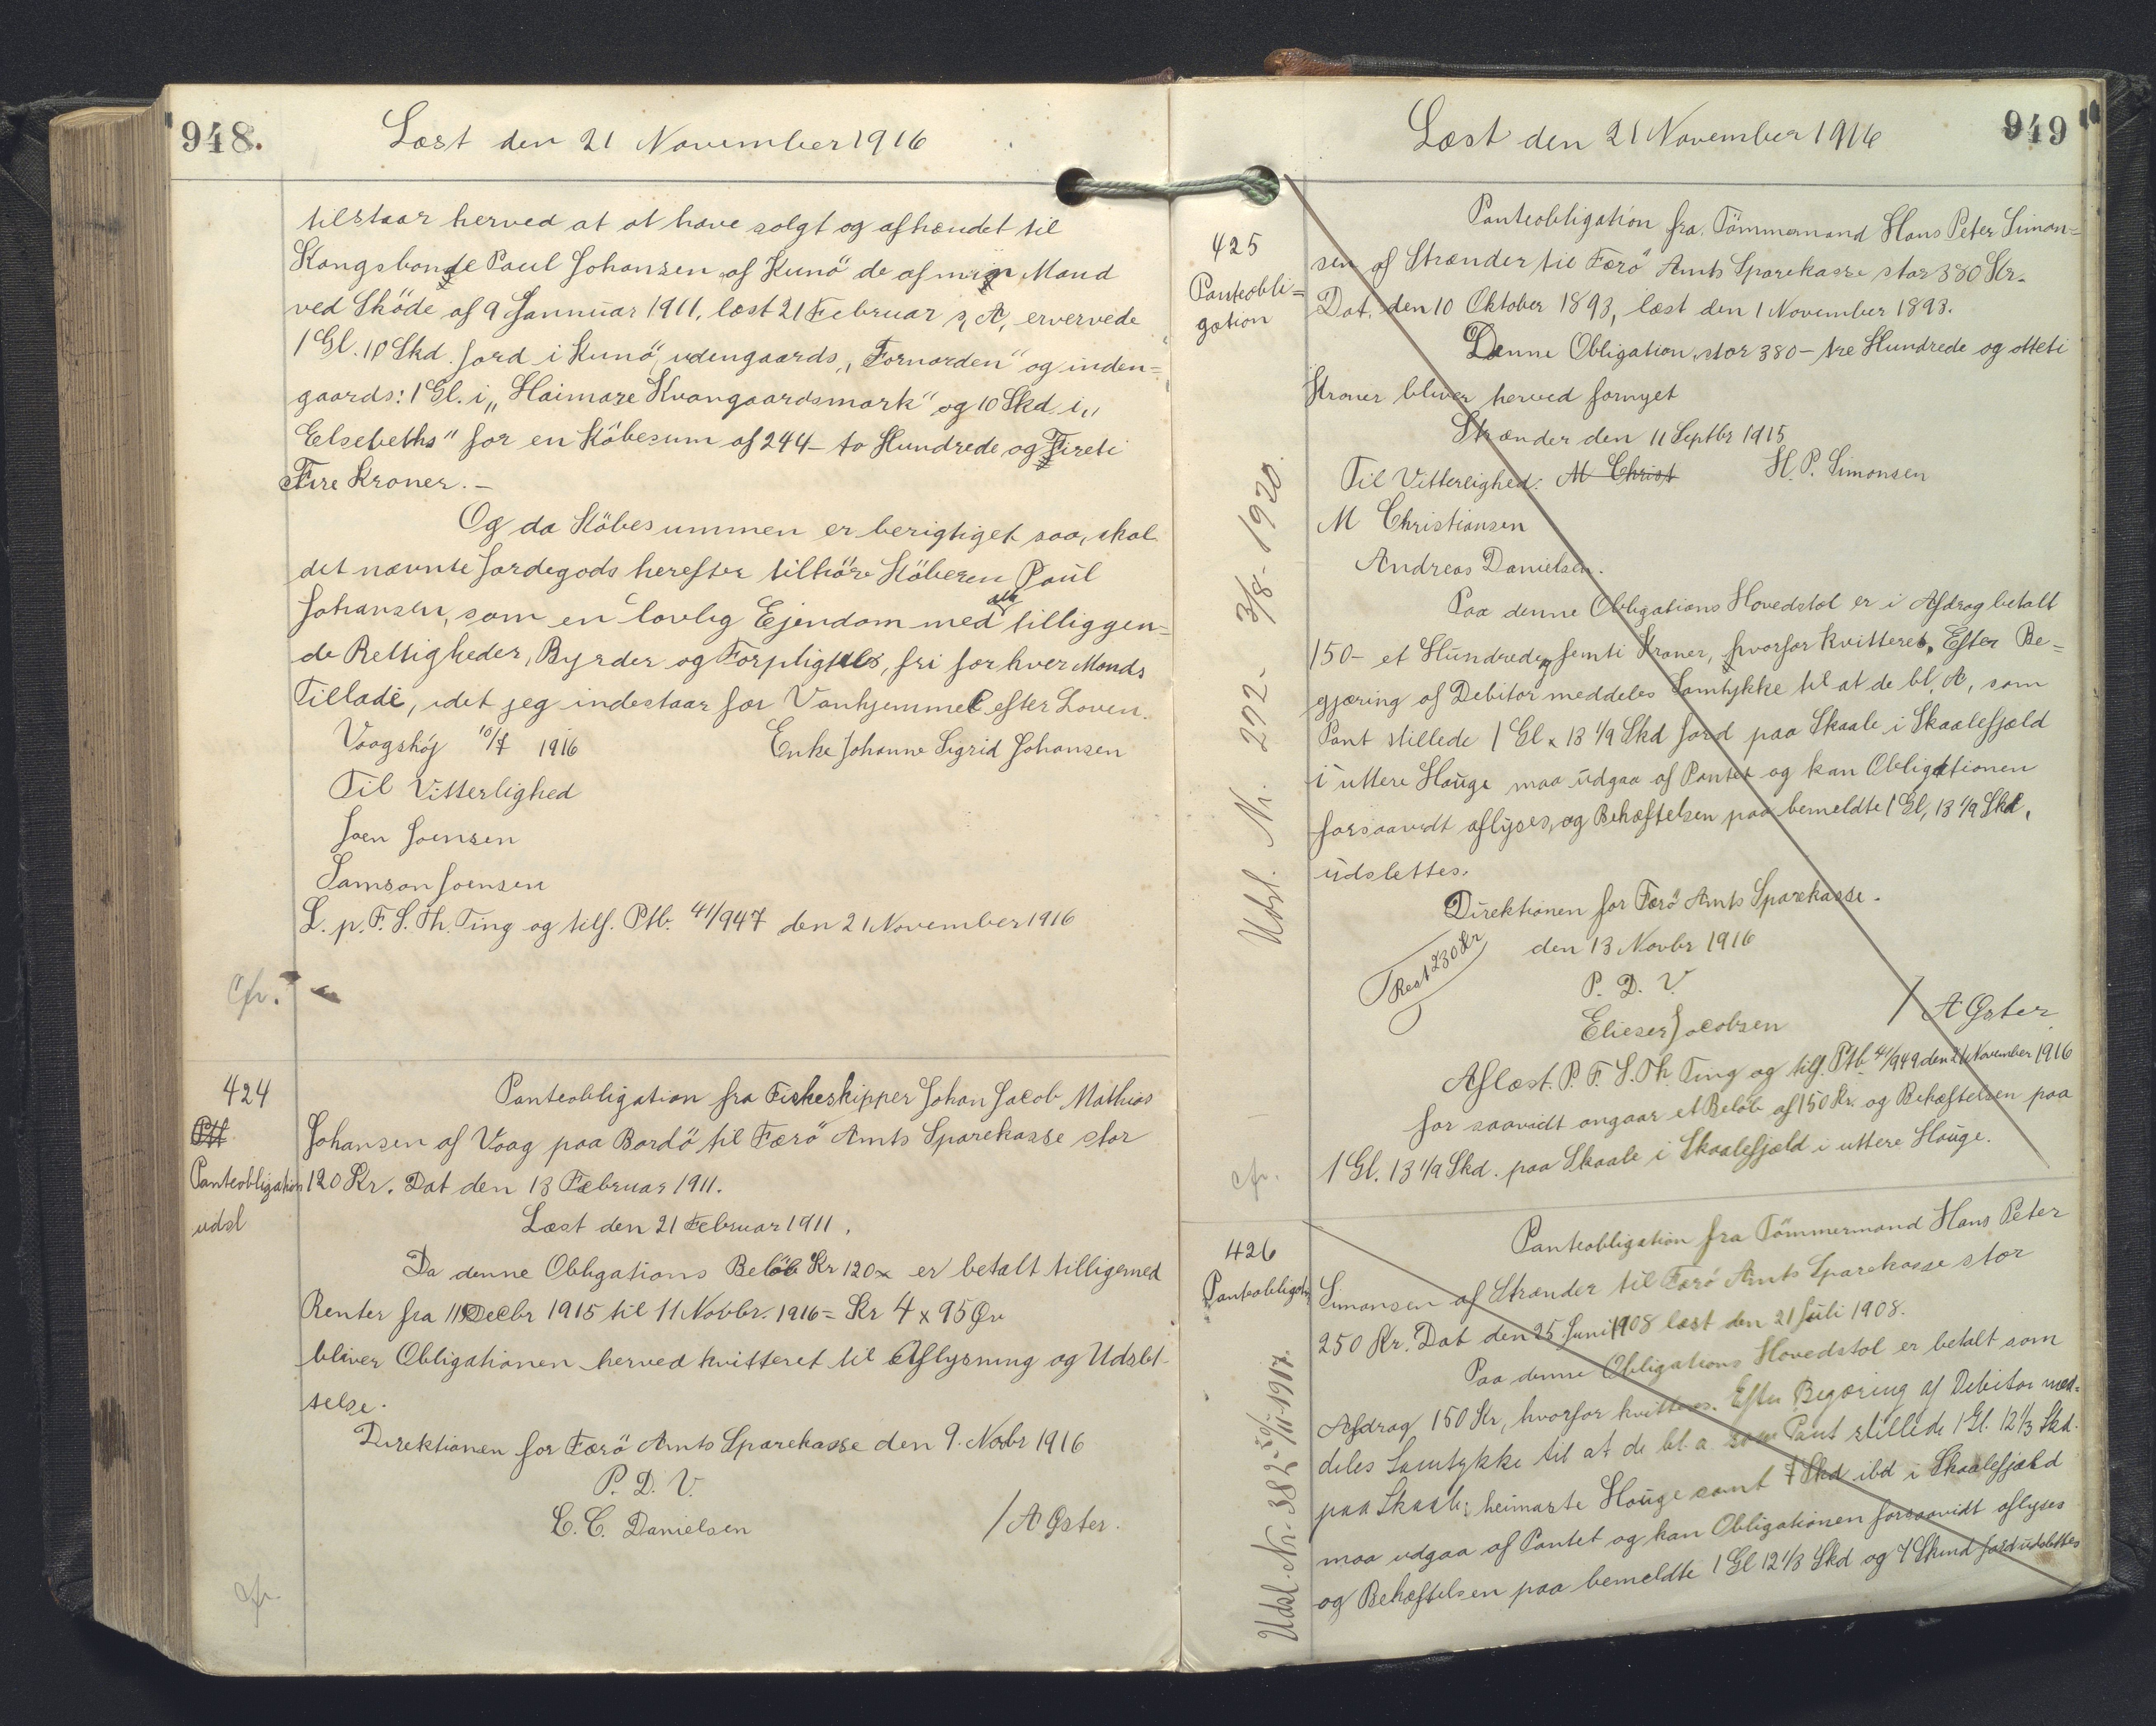 948.
Læst den 21 November 1916
tilstaar herved at at have solgt og afhændet til
Kongsbonde Paul Johansen af Kunö de af min Mand
ved Sköde af 9 Jannuar 1911, læst 21 Februar s. A, ervervede
1 Gl. 10 Skd. Jord i Kunö, udengaards, „Fornorden" og inden=
gaards: 1 Gl. i „Haimare Kvangaardsmark" og 10 Skd. i „
Elsebeths" for en Köbesum af 244 - to Hundrede og Fireti
Fire Kroner. -
Og da Köbesummen er berigtiget saa, skal
det nævnte Jordegods herefter tilhöre Köberen Paul
Johansen, som en lovlig Ejendom med alle tilliggen=
de Rettigheder, Byrder og Forpligtels, fri for hver Mands
Tillade, idet jeg indestaar for Vanhjemmel efter Loven.
Vaagshöj 10/7 1916
Enke Johanne Sigrid Johansen
Til Vitterlighed
Joen Joensen
Samson Joensen
L. p. F. S. Th. Ting og tilf. Ptb. 41/947 den 21 November 1916
Cfr.
424
Ptt
Panteobligation
udsl
Panteobligation fra Fiskeskipper Johan Jacob Mathias
Johansen af Vaag paa Bordö til Færö Amts Sparekasse stor
120 Kr. Dat den 13 Februar 1911.
Læst den 21 Februar 1911.
Da denne Obligations Belöb Kr 120 x er betalt tilligemed
Renter fra 11 Decbr 1915 til 11 Novbr. 1916 = Kr 4 x 95 Øre
bliver Obligationen herved kvitteret til Aflysning og Udslet-
telse.
Direktionen for Færö Amts Sparekasse den 9. Novbr 1916
P. D. V.
C. C. Danielsen
/ A Øster.
Cfr.
949
Læst den 21 November 1916
425
Panteobli=
gation
Panteobligation fra Tömmermand Hans Peter Simon=
sen af Strænder til Færö Amts Sparekasse stor 380 Kr.
Dat. den 10 Oktober 1893, læst den 1 November 1893.
Denne Obligation, stor 380 - tre Hundrede og otteti
Kroner bliver herved fornyet
Strænder den 11 Septbr 1915
Til Vitterlighed: M Christ
H. P. Simonsen
M Christiansen
Andreas Danielsen.
Paa denne Obligations Hovedstol er i Afdrag betalt
150 - et Hundrede og femti Kroner, hvorfor kvitteres. Efter Be=
gjæring af Debitor meddeles Samtykke til at de bl. A, som
Pant stillede 1 Gl x 13 1/9 Skd Jord paa Skaale i Skaalefjæld
i uttere Houge maa udgaa af Pantet og kan Obligationen
forsaavidt aflyses, og Behæftelsen paa bemeldte 1 Gl, 13 1/9 Skd,
udslettes.
Direktionen for Færö Amts Sparekasse.
Rest 230 Kr
den 13 Novbr 1916
P. D. V.
Elieser Jacobsen
/ A Øster
Aflæst. P. F. S. Th. Ting og tilf. Ptb. 41/949 den 21 November 1916
for saavidt angaar et Belöb af 150 Kr. og Behæftelsen paa
1 Gl. 13 1/9 Skd. paa Skaale i Skaalefjæld i uttere Houge.
Udsl. Nr. 272- 3/8- 1920.
cfr.
426
Panteobligation
Panteobligation fra Tömmermand Hans Peter
Simonsen af Strænder til Færö Amts Sparekasse stor
250 Kr. Dat den 25. Juni 1908 læst den 21 Juli 1908.
Paa denne Obligations Hovedstol er betalt som
Afdrag 150 Kr, hvorfor kvitteres. Efter Begæring af Debitor med=
deles Samtykke til at de bl. a. som Pant stillede 1 Gl. 12 1/3 Skd.
paa Skaale: heimarte Houge samt 7 Skd ibd i Skaalefjæld
maa udgaa af Pantet og kan Obligationen forsaavidt aflyses
og Behæftelsen paa bemeldte 1 Gl 12 1/3 Skd og 7 Skind Jord udslettes
Udsl. Nr. 382- 20/11- 1917.